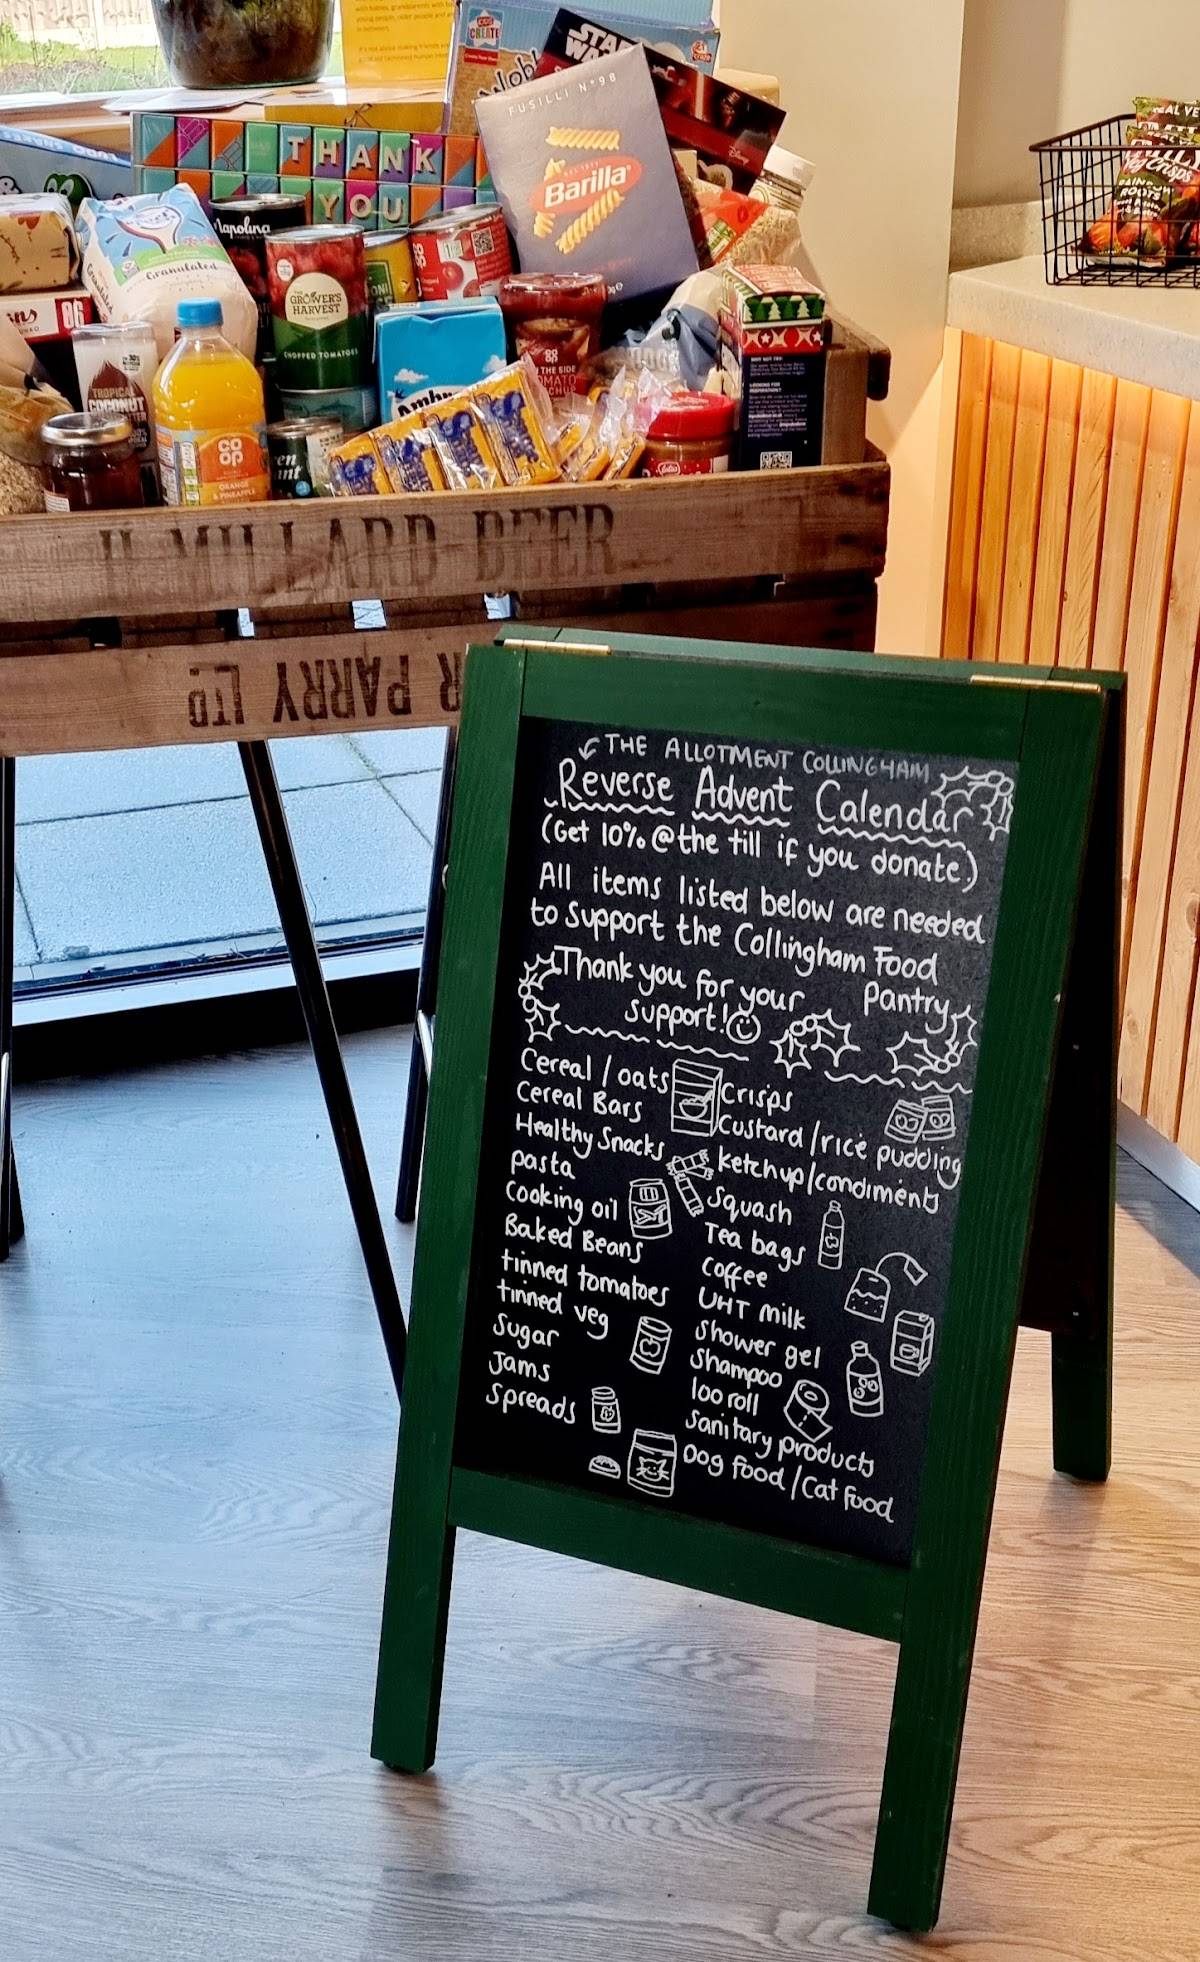 CREATE
STAR
WARS
Disney
FUSILLI N°98
Barilla
THANK
YOU
Napolina
Granulated
THE
GROWER'S
HARVEST
CHOPPED TOMATOES
CO
OP
TROPICAL
COCONUT
CO
OP
ORANGE
& PINEAPPLE
Lotus
Veg Crisps
H. MILLARD BEER
R PARRY LTD
THE ALLOTMENT COLLINGHAM
Reverse Advent Calendar
(Get 10% @ the till if you donate.)
All items listed below are needed
to support the Collingham Food
Pantry
Thank you for your
support!
Cereal / oats
Cereal Bars
Healthy Snacks
pasta
Cooking oil
Baked Beans
tinned tomatoes
tinned veg
Sugar
Jams
Spreads
Crisps
Custard / rice pudding
ketchup/condiments
Squash
Tea bags
coffee
UHT milk
Shower gel
Shampoo
loo roll
sanitary products
Dog food / Cat food